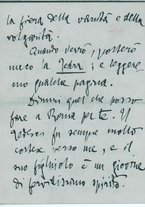 la fiera della vanità e della
volgarità.
Quando verrò, porterò
meco la Fedra; e leggeremo
qualche pagina.
Dimmi quel che posso
fare a Roma per te. Il
fu sempre molto
cortese verso me, e il
suo figliuolo è un giovine
di finissimo spirito.